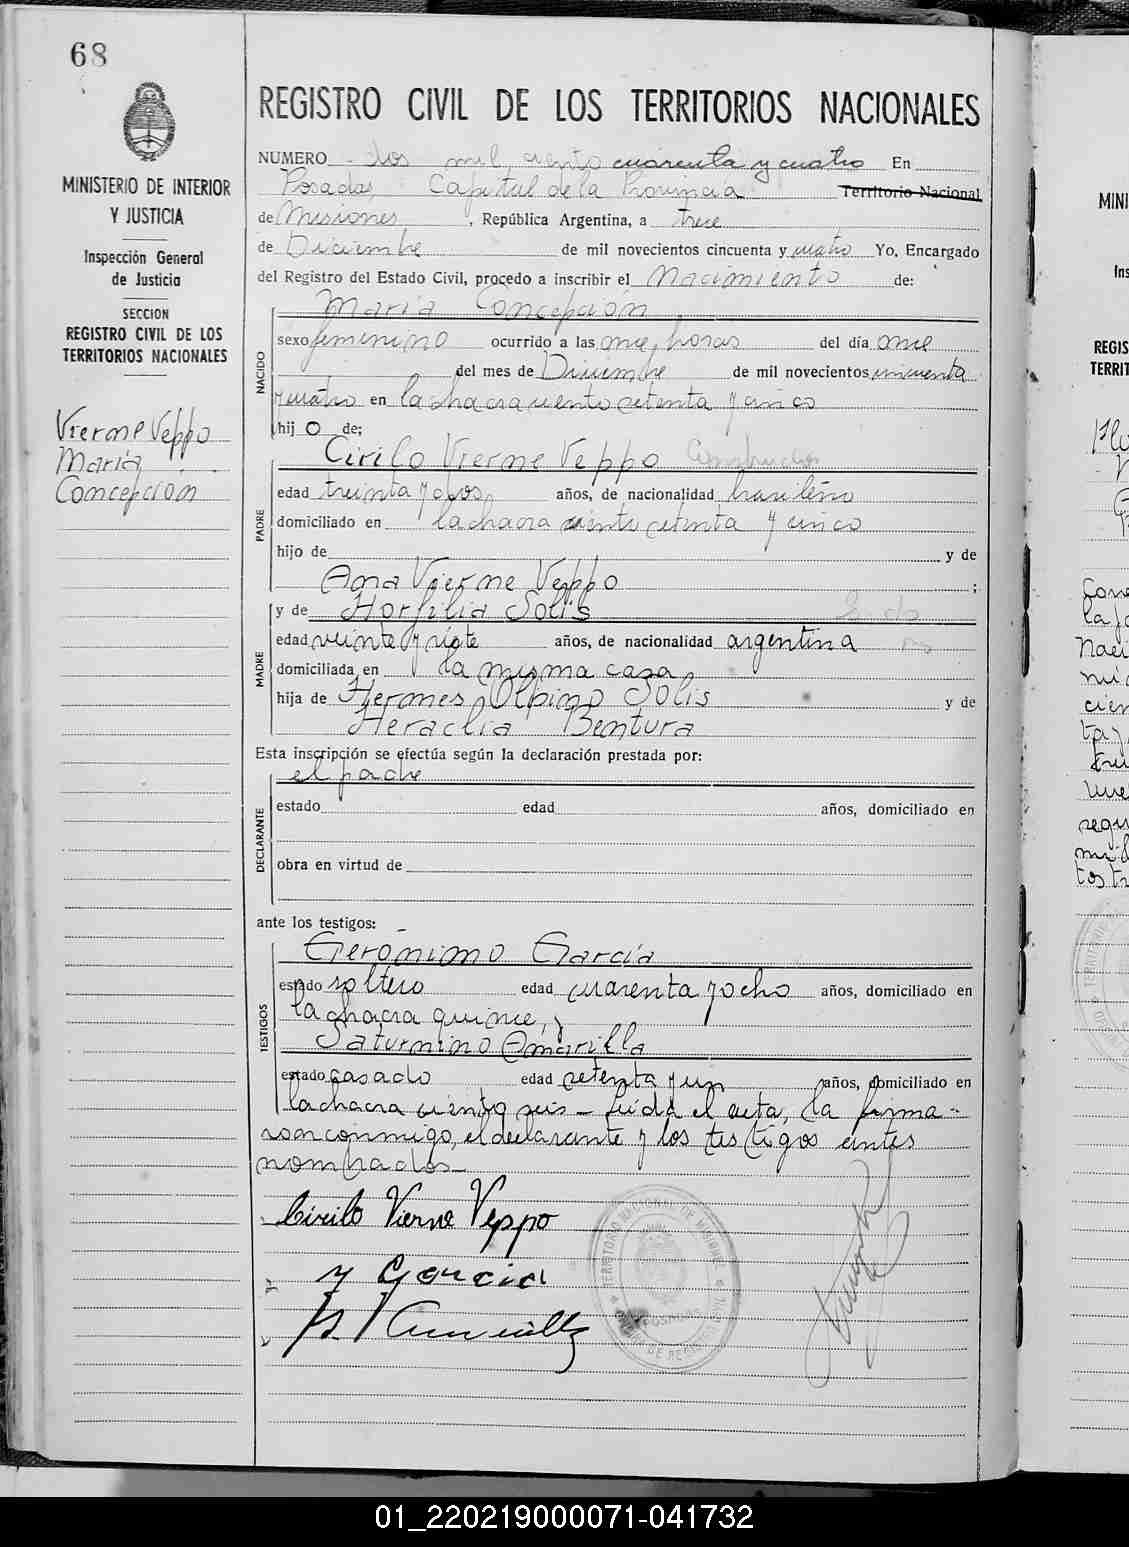 68
MINISTERIO DE INTERIOR
Y JUSTICIA
Inspección General
de Justicia
SECCION
REGISTRO CIVIL DE LOS
TERRITORIOS NACIONALES
Vierne Veppo
María
Concepción
REGISTRO CIVIL DE LOS TERRITORIOS NACIONALES
NUMERO - dos mil ciento cuarenta y cuatro En
Posadas, Capital de la Provincia Territorio Nacional
de Misiones, República Argentina, a trece
de Diciembre de mil novecientos cincuenta y cuatro Yo, Encargado
del Registro del Estado Civil, procedo a inscribir el Nacimiento de:
NACIDO
María Concepción
sexo femenino ocurrido a las once horas del día once
del mes de Diciembre de mil novecientos cincuenta
y cuatro en la chacra ciento setenta y cinco
hij o de;
PADRE
Cirilo Vierne Veppo
edad treinta y dos, años, de nacionalidad brasileño
domiciliado en la chacra ciento setenta y cinco
hijo de y de
Ana Vierne Veppo ;
MADRE
y de Horfilia Solis
edad veinte y siete años, de nacionalidad argentina
domiciliada en la misma casa
hija de Hermes Olpino Solis y de
Heraclia Bentura
Esta inscripción se efectúa según la declaración prestada por:
el padre
DECLARANTE
estado edad años, domiciliado en
obra en virtud de
ante los testigos:
TESTIGOS
Gerónimo García
estado soltero edad cuarenta y ocho años, domiciliado en
la chacra quince, y
Saturnino Amarilla
estado casado edad setenta y un años, domiciliado en
la chacra ciento seis - Leída el acta, la firma-
ron conmigo, el declarante y los testigos antes
nombrados-
Cirilo Vierne Veppo
Garcia
TERRITORIO NACIONAL DE MISIONES
POSADAS
01_220219000071-041732